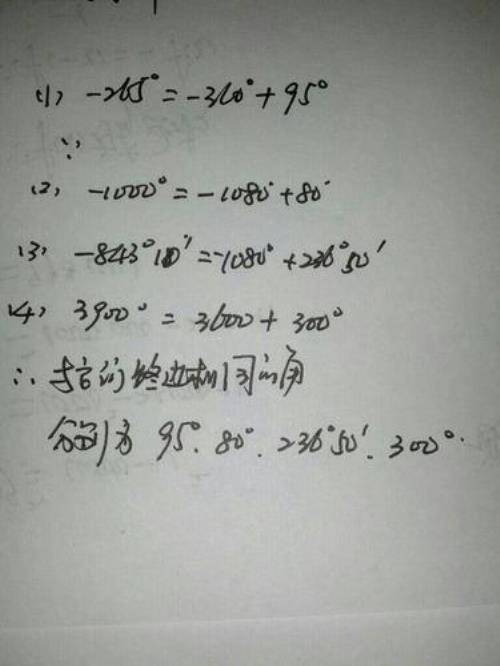 (1) -265° = -360° + 95°
∵
(2) -1000° = -1080° + 80°
(3) -843°10' = -1080° + 236°50'
(4) 3900° = 3600 + 300°
∴ 与它们终边相同的角
分别为 95°. 80°. 236°50'. 300°.